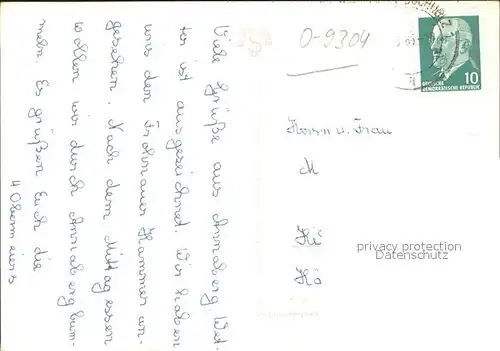 Viele Grüße aus Annaberg. Wet-
ter ist ausgezeichnet. Wir haben
uns den Frohnauer Hammer an-
gesehen. Nach dem Mittagessen
wollen wir durch Annaberg bum-
meln. Es grüßen Euch die
4 Obermeiers
0-9304
10
DEUTSCHE
DEMOKRATISCHE REPUBLIK
Herrn u. Frau
M
Hi
Hä
privacy protection
Datenschutz